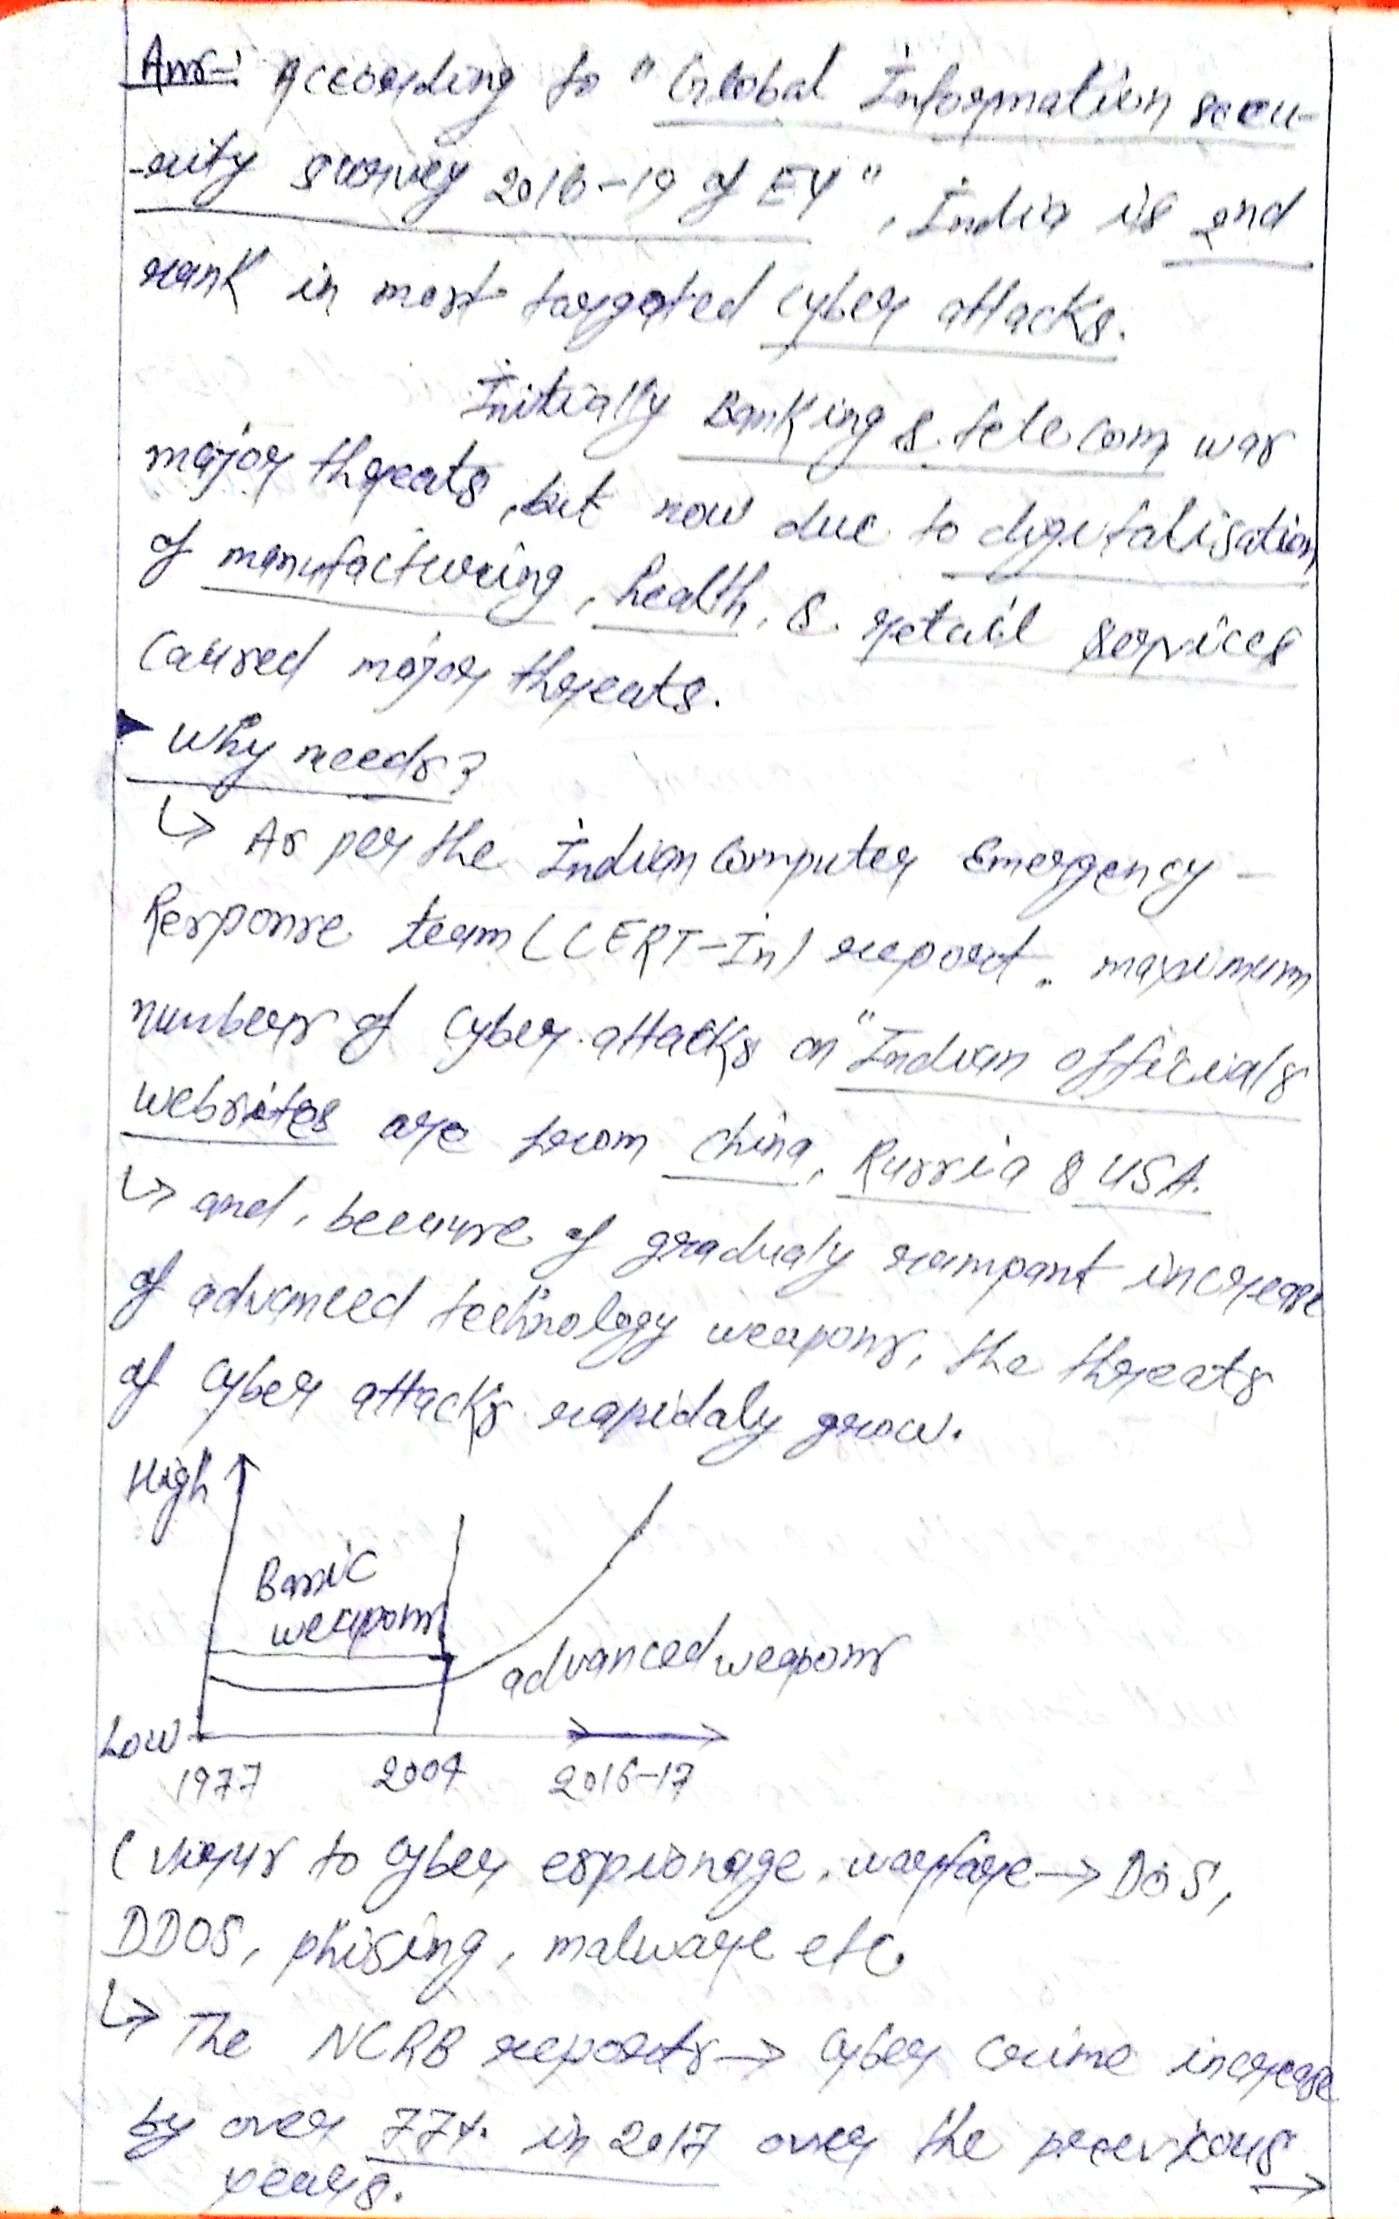 Ans:- According to "Global Information secu-
-rity survey 2018-19 of EY", India is 2nd
rank in most targated cyber attacks.
Initially Banking & telecom was
major threats, but now due to digitalisation
of manufacturing, health, & retail services
Caused major threats.
Why needs?
↳ As per the Indian Computer Emergency -
Response team (CERT-In) report, maximum
numbers of cyber attacks on "Indian officials
websites are from China, Russia & USA.
↳ and, because of gradualy rampant increase
of advanced technology weapons, the threats
of cyber attacks rapidaly grow.
High
Basic
weapons
advanced weapons
Low
1977 2004 2016-17
(virus to cyber espionage, warfare → DoS,
DDOS, phising, malware etc.
↳ The NCRB reports → cyber crime increase
by over 77%. in 2017 over the previous
years.